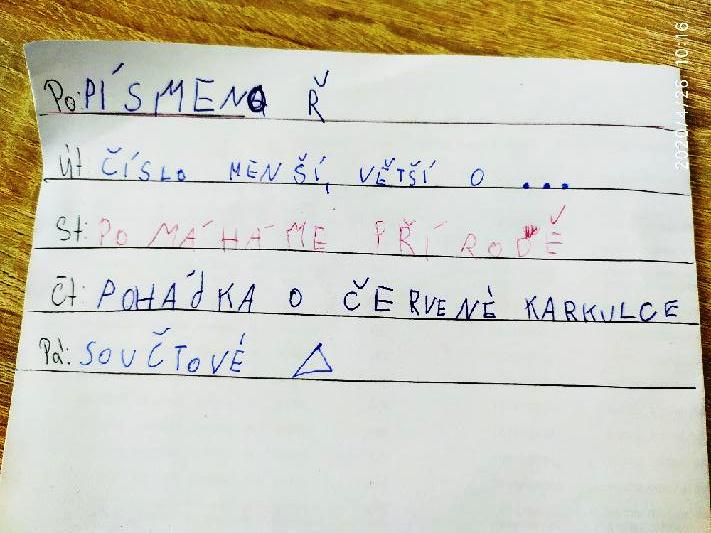 Po: PÍSMENO Ř
Út: ČÍSLO MENŠÍ, VĚTŠÍ O ...
St: POMÁHÁME PŘÍRODĚ
Čt: POHÁdKA O ČERVENÉ KARKULCE
Pá: SOUČTOVÉ △
2020/4/26 10:16